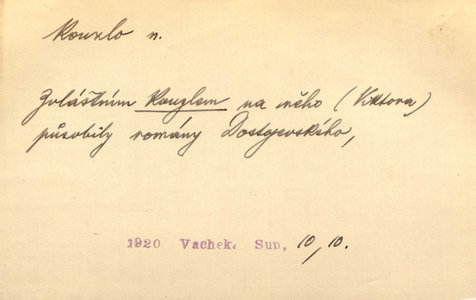 Kouzlo n.
Zvláštním kouzlem na něho (Viktora)
působily romány Dostojevského,
1920 Vachek. Sup, 10, 10.